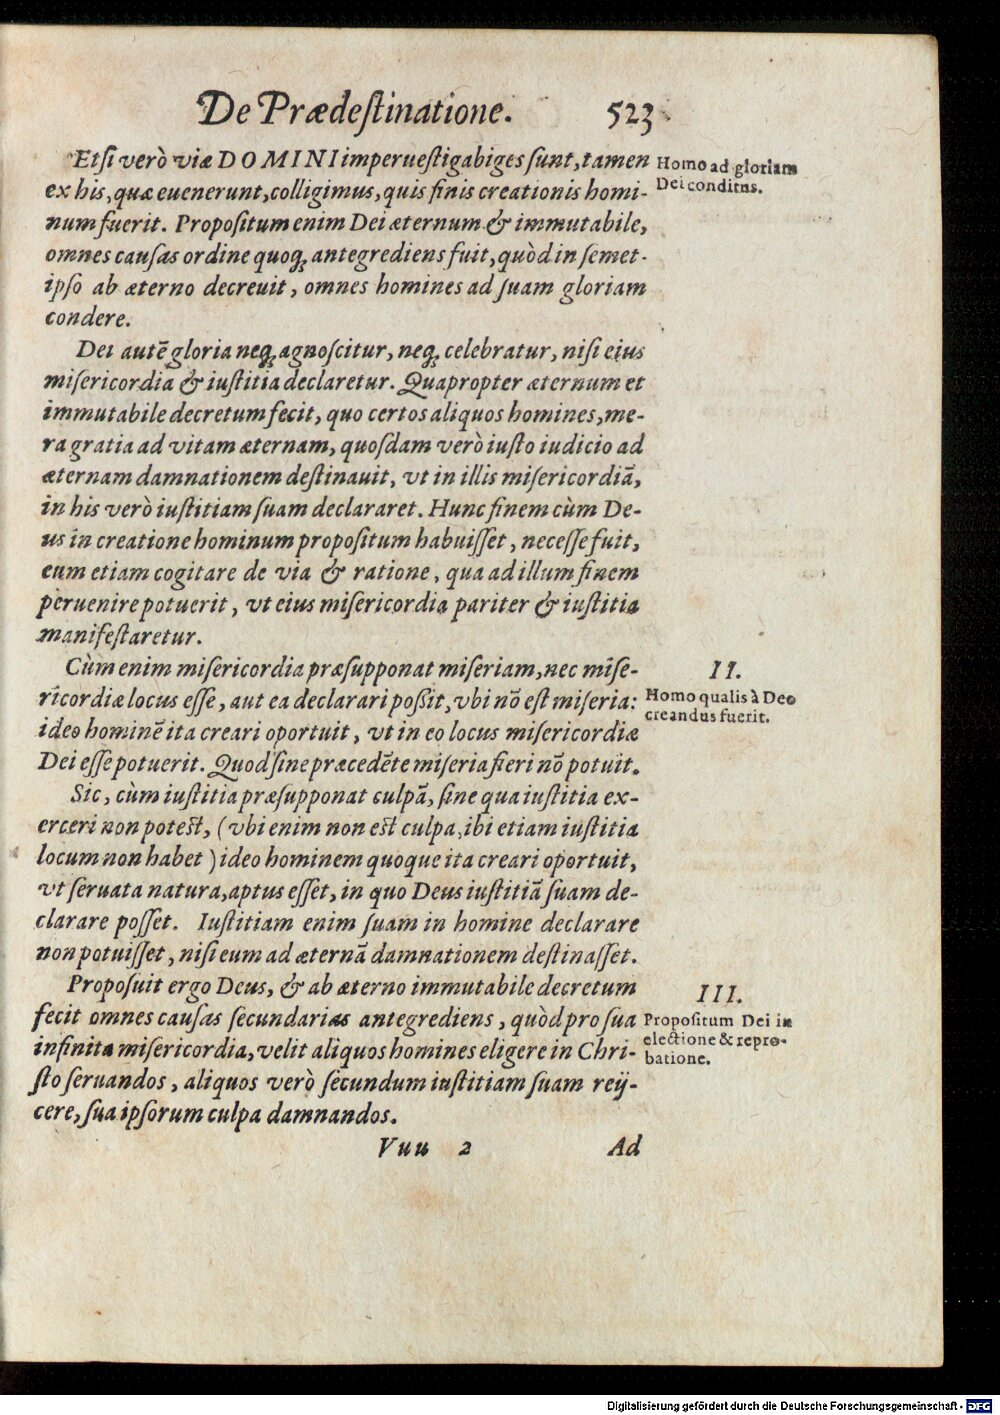 De Prædeſtinatione. 523
Etſi verò viæ DOMINI imperueſtigabiges ſunt, tamen
ex his, quæ euenerunt, colligimus, quis finis creationis homi-
num fuerit. Propoſitum enim Dei æternum & immutabile,
omnes cauſas ordine quoq; antegrediens fuit, quòd in ſemet-
ipſo ab æterno decreuit, omnes homines ad ſuam gloriam
condere.
Homo ad gloriam
Dei conditus.
Dei autẽ gloria neq; agnoſcitur, neq; celebratur, niſi eius
miſericordia & iuſtitia declaretur. Quapropter æternum et
immutabile decretum fecit, quo certos aliquos homines, me-
ra gratia ad vitam æternam, quoſdam verò iuſto iudicio ad
æternam damnationem deſtinauit, vt in illis miſericordiã,
in his verò iuſtitiam ſuam declararet. Hunc finem cùm De-
us in creatione hominum propoſitum habuiſſet, neceſſe fuit,
eum etiam cogitare de via & ratione, qua ad illum finem
peruenire potuerit, vt eius miſericordia pariter & iuſtitia
manifeſtaretur.
Cùm enim miſericordia præſupponat miſeriam, nec miſe-
ricordiæ locus eſſe, aut ea declarari poßit, vbi nõ eſt miſeria:
ideo hominẽ ita creari oportuit, vt in eo locus miſericordiæ
Dei eſſe potuerit. Quod ſine præcedẽte miſeria fieri nõ potuit.
II.
Homo qualis à Deo
creandus fuerit.
Sic, cùm iuſtitia præſupponat culpã, ſine qua iuſtitia ex-
erceri non poteſt, (vbi enim non eſt culpa, ibi etiam iuſtitia
locum non habet) ideo hominem quoque ita creari oportuit,
vt ſeruata natura, aptus eſſet, in quo Deus iuſtitiã ſuam de-
clarare poſſet. Iuſtitiam enim ſuam in homine declarare
non potuiſſet, niſi eum ad æternã damnationem deſtinaſſet.
Propoſuit ergo Deus, & ab æterno immutabile decretum
fecit omnes cauſas ſecundarias antegrediens, quòd pro ſua
infinita miſericordia, velit aliquos homines eligere in Chri-
ſto ſeruandos, aliquos verò ſecundum iuſtitiam ſuam reij-
cere, ſua ipſorum culpa damnandos.
III.
Propoſitum Dei in
electione & repro-
batione.
Vuu 2 Ad
Digitalisierung gefördert durch die Deutsche Forschungsgemeinschaft - DFG